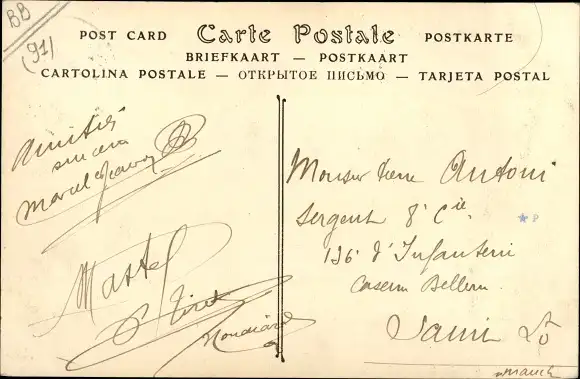 BB
(91)
POST CARD Carte Postale POSTKARTE
BRIEFKAART — POSTKAART
CARTOLINA POSTALE — ОТКРЫТОЕ ПИСЬМО — TARJETA POSTAL
Amitiés
sincères
Marcel
Martel
Monsieur Pierre Antoni
Sergent 8e Cie
136e d'Infanterie
Caserne Bellevue
Saint Lô
Manche